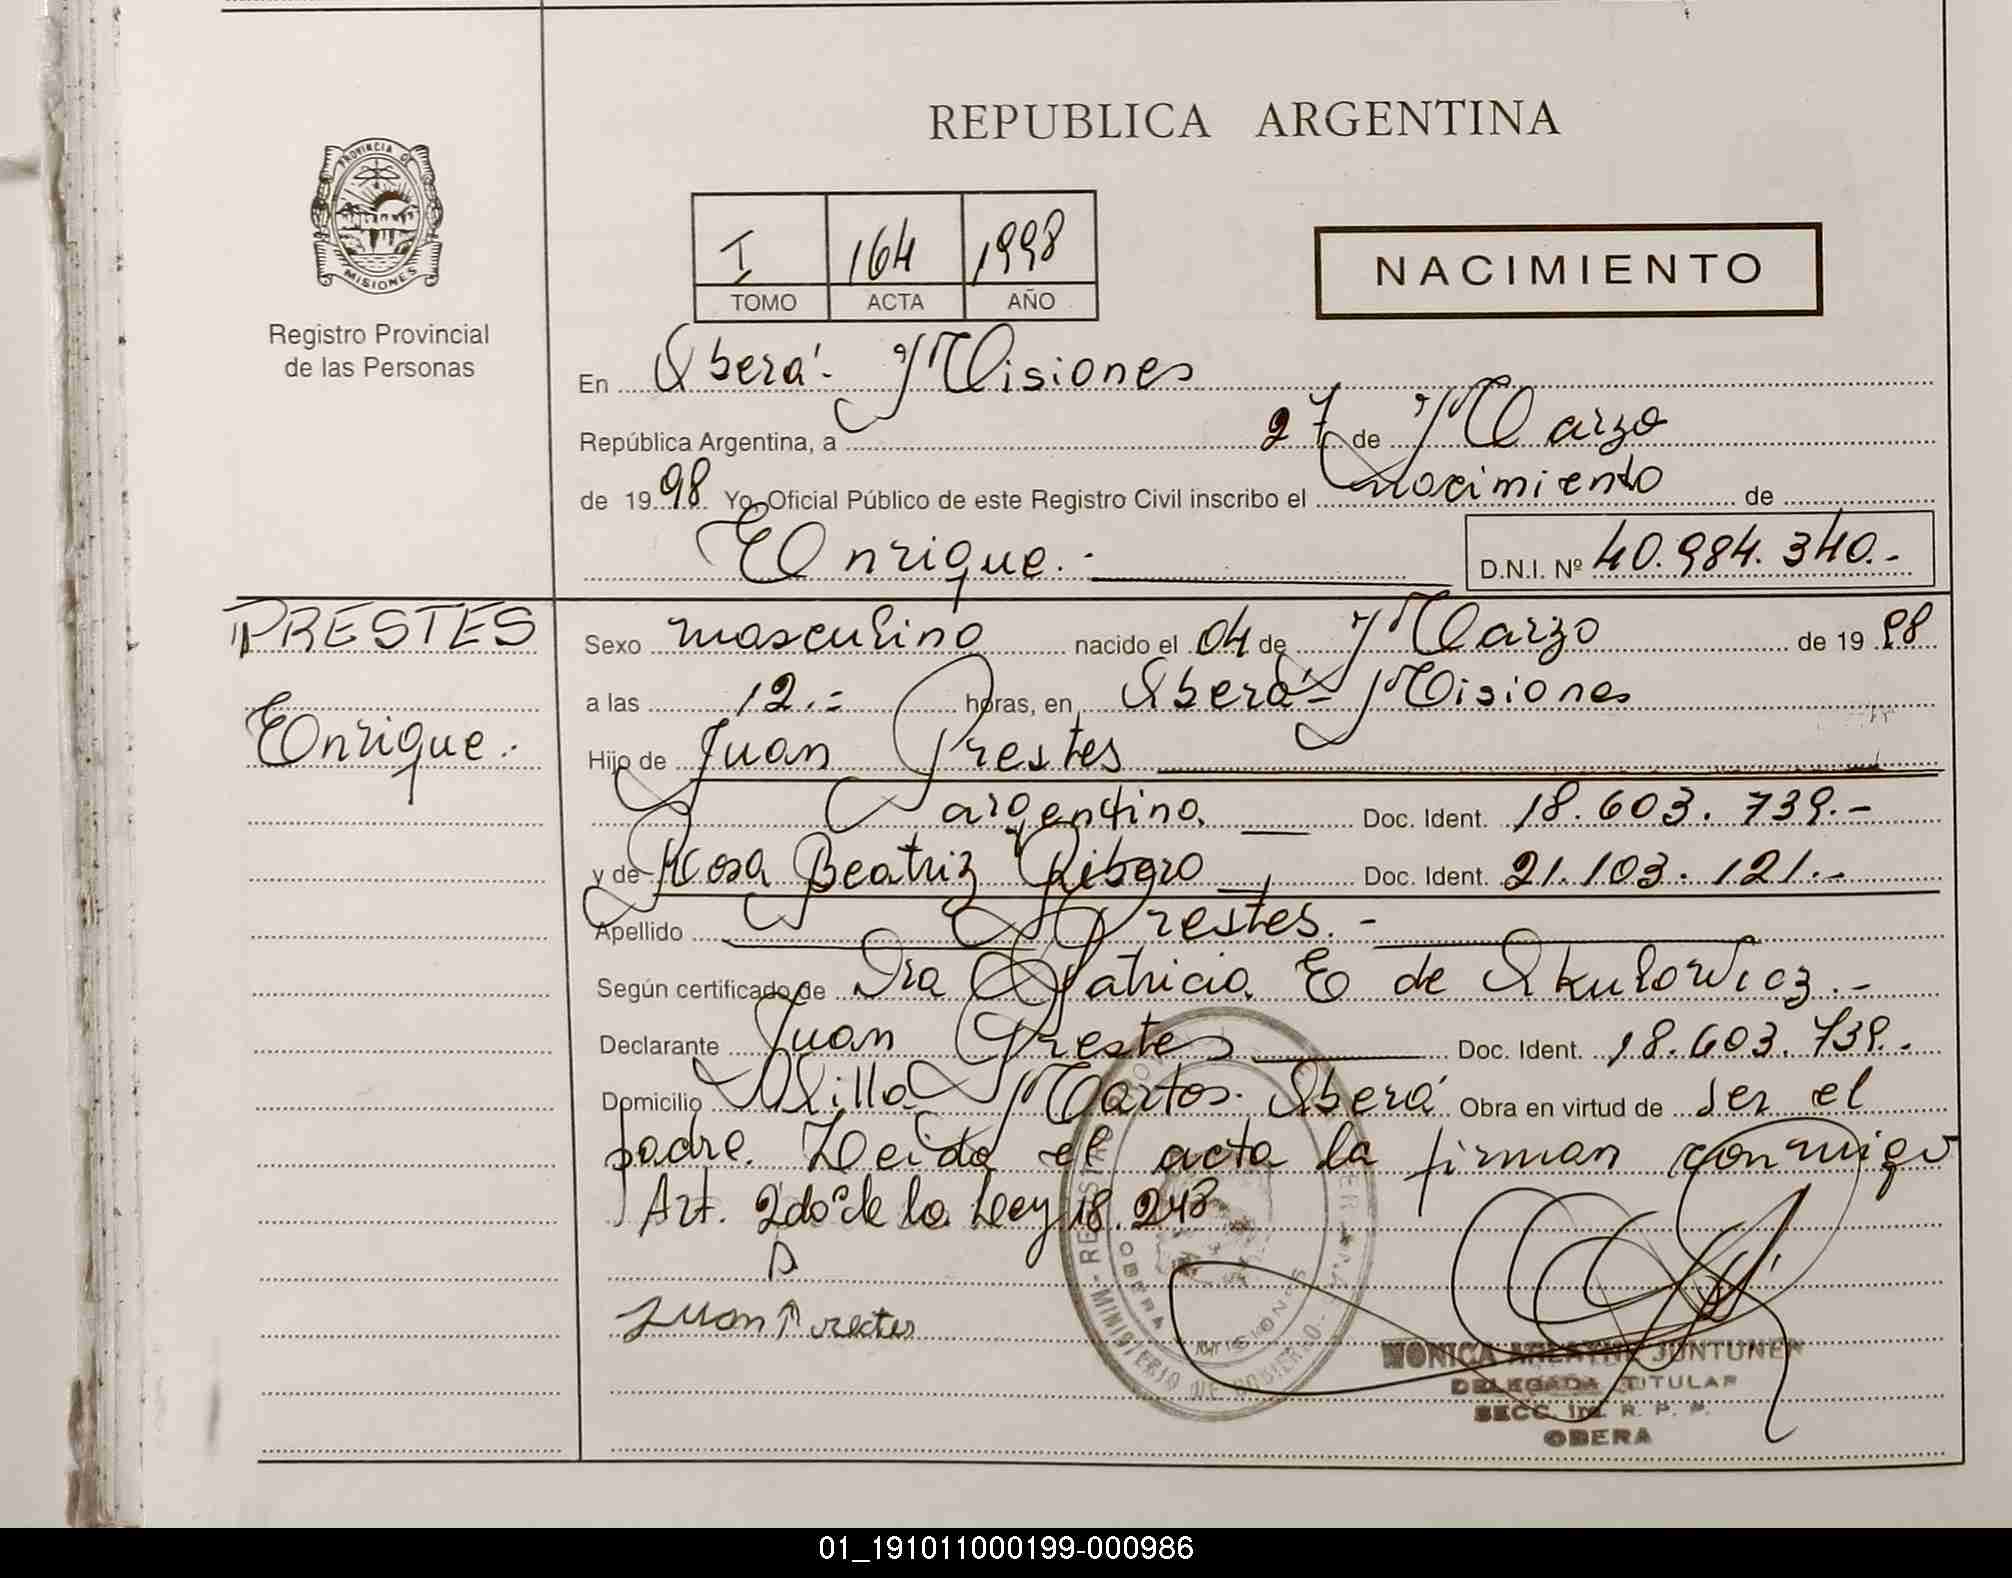 REPUBLICA ARGENTINA
PROVINCIA DE
MISIONES
Registro Provincial
de las Personas
I 164 1998
TOMO ACTA AÑO
NACIMIENTO
En Oberá - Misiones
República Argentina, a 27 de Marzo
de 1998 Yo, Oficial Público de este Registro Civil inscribo el nacimiento de
Enrique.- D.N.I. Nº 40.984.340.-
PRESTES
Enrique.-
Sexo masculino nacido el 04 de Marzo de 1998
a las 12.- horas, en Oberá - Misiones
Hijo de Juan Prestes
argentino. Doc. Ident. 18.603.739.-
y de Rosa Beatriz Ribero Doc. Ident. 21.103.121.-
Apellido Prestes.-
Según certificado de Dra Patricia E de Skulowicz.-
Declarante Juan Prestes Doc. Ident. 18.603.739.-
Domicilio Villa Martos. Oberá Obra en virtud de ser el
padre. Leida el acta la firman conmigo
Art. 2do de la Ley 18.248
Juan Prestes
MINISTERIO DE GOBIERNO
OBERA MISIONES
MONICA JUNTUNEN
DELEGADA TITULAR
SECC. R. P. P.
OBERA
01_191011000199-000986